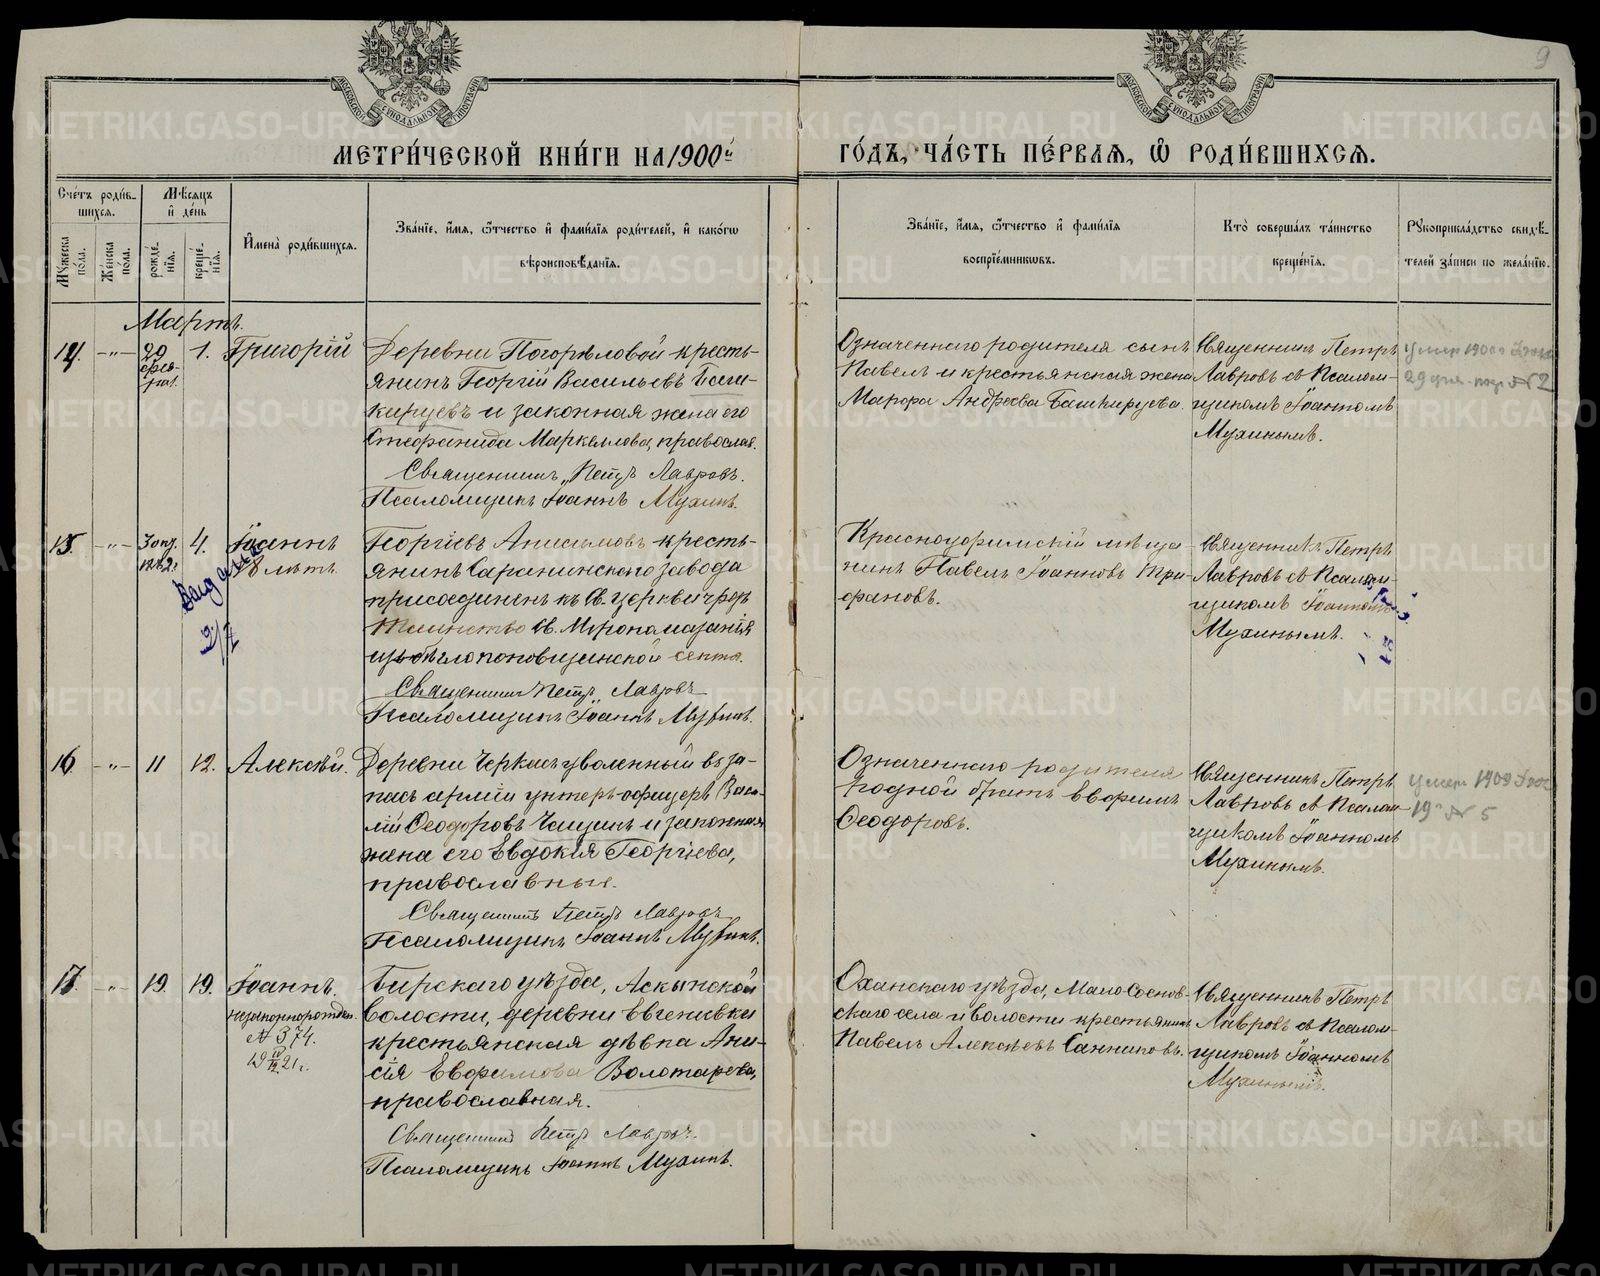 МЕТРИ́ЧЕСКОЙ КНИ́ГИ НА 1900й
ГО́ДЪ, ЧА́СТЬ ПЕ́РВАЯ, Ѡ҆ РОДИ́ВШИХСЯ.
9
Сче́тъ роди́в-
шихся.
Мѣ́сяцъ
и҆ де́нь
Мꙋ́жеска по́ла.
Же́нска по́ла.
рожде́-
нїя.
креще́-
нїя.
И҆мена̀ роди́вшихся.
Зва́нїе, и҆́мя, ѻ҆́тчество и҆ фами́лїя роди́телей, и҆ како́гѡ
вѣроисповѣ́данїя.
Зва́нїе, и҆́мя, ѻ҆́тчество и҆ фами́лїя
воспрїе́мникѡвъ.
Кто̀ соверша́лъ та́инство
креще́нїя.
Рꙋкоприкла́дство свидѣ́-
телей за́писи по жела́нїю.
Мартъ.
14.
-"-
29
фев-
1.
Григорій
Деревни Погорѣловой кресть-
янинъ Георгій Васильевъ Баш-
кирцевъ и законная жена его
Стефанида Маркеллова, православ.
Священникъ Петръ Лавровъ.
Псаломщикъ Іоаннъ Мухинъ.
Означеннаго родителя сынъ
Павелъ и крестьянская жена
Марфа Андреева Башкирцева.
Священникъ Петръ
Лавровъ съ Псалом-
щикомъ Іоанномъ
Мухинымъ.
умер 1900
29 № 2
15.
-"-
4.
Іоаннъ
8 лѣтъ.
Георгіевъ Анисимовъ кресть-
янинъ Саранинскаго завода
присоединенъ къ Св. церкви чрезъ
Таинство Св. Мѵропомазанія
изъ бѣглопоповщинской секты.
Священникъ Петръ Лавровъ
Псаломщикъ Іоаннъ Мухинъ.
Красноуфимскій мѣща-
нинъ Павелъ Іоанновъ Три-
фановъ.
Священникъ Петръ
Лавровъ съ Псалом-
щикомъ Іоанномъ
Мухинымъ.
16.
-"-
11
12.
Алексѣй.
Деревни Черкасъ уволенный въ за-
пасъ арміи унтеръ-офицеръ Васи-
лій Ѳеодоровъ Чащинъ и законная
жена его Евдокія Георгіева,
православные.
Священникъ Петръ Лавровъ
Псаломщикъ Іоаннъ Мухинъ.
Означеннаго родителя
родной братъ Евфимъ
Ѳеодоровъ.
Священникъ Петръ
Лавровъ съ Псалом-
щикомъ Іоанномъ
Мухинымъ.
умер
19 № 5
17.
-"-
19.
19.
Іоаннъ.
незаконнорожден.
№ 374.
Бирскаго уѣзда, Аскынской
волости, деревни Евгеновки
крестьянская дѣвка Ани-
сія Евфимова Волотарева,
православная.
Священникъ Петръ Лавровъ.
Псаломщикъ Іоаннъ Мухинъ.
Оханскаго уѣзда, Мало-Соснов-
скаго села и волости крестьянинъ
Павелъ Алексѣевъ Санниковъ.
Священникъ Петръ
Лавровъ съ Псалом-
щикомъ Іоанномъ
Мухинымъ.
METRIKI.GASO-URAL.RU